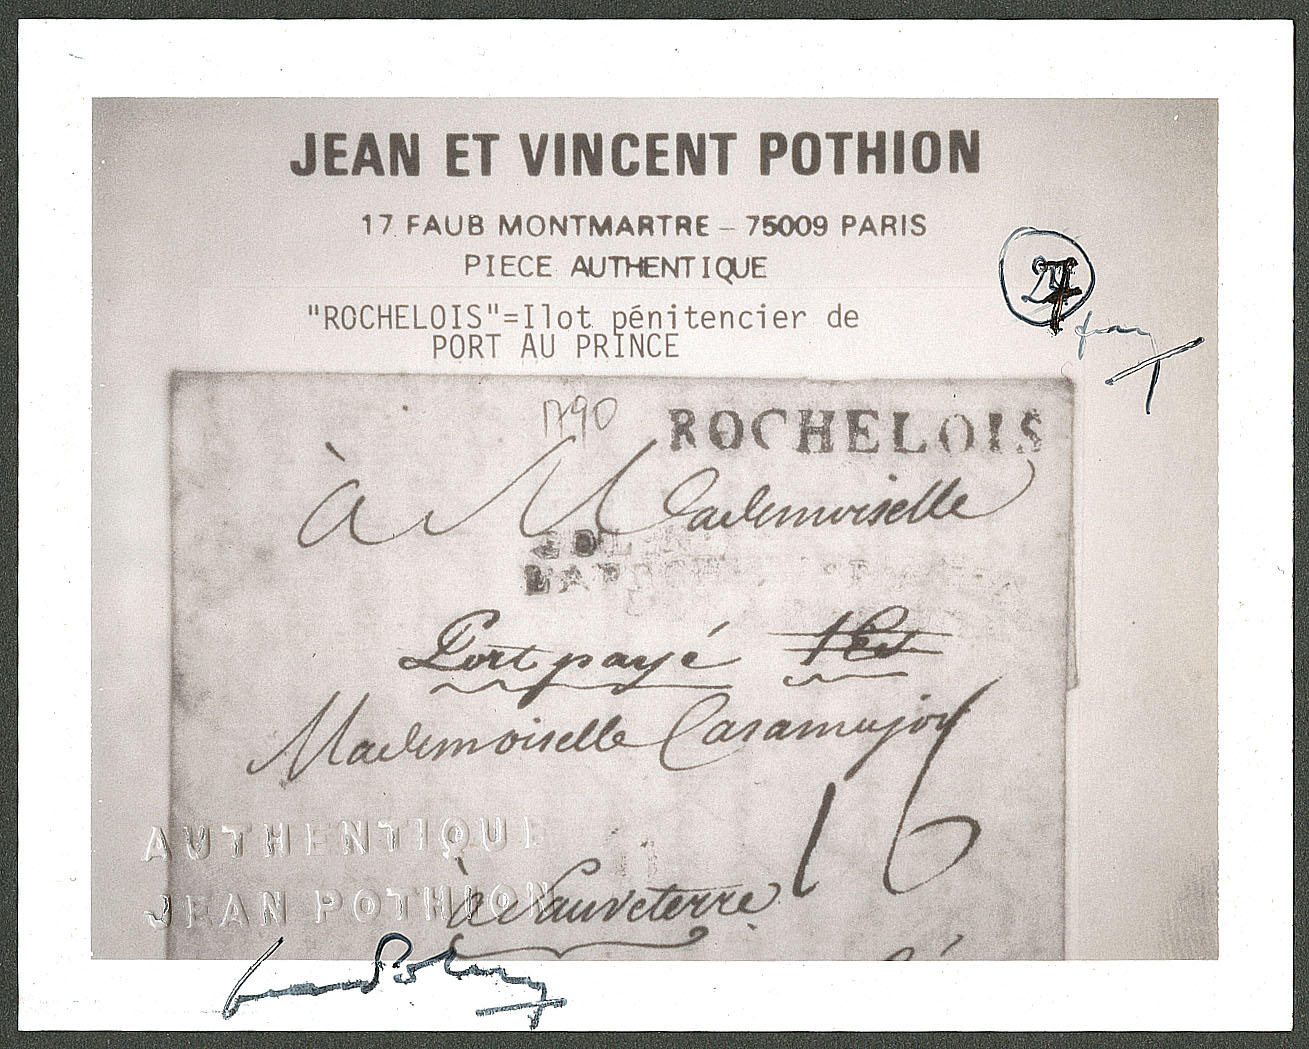 JEAN ET VINCENT POTHION
17 FAUB MONTMARTRE – 75009 PARIS
PIECE AUTHENTIQUE
"ROCHELOIS"=Ilot pénitencier de
PORT AU PRINCE
1790
ROCHELOIS
à Mademoiselle
COL
Port payé
Mademoiselle Casamajor
16
AUTHENTIQUE
JEAN POTHION
à Sauveterre